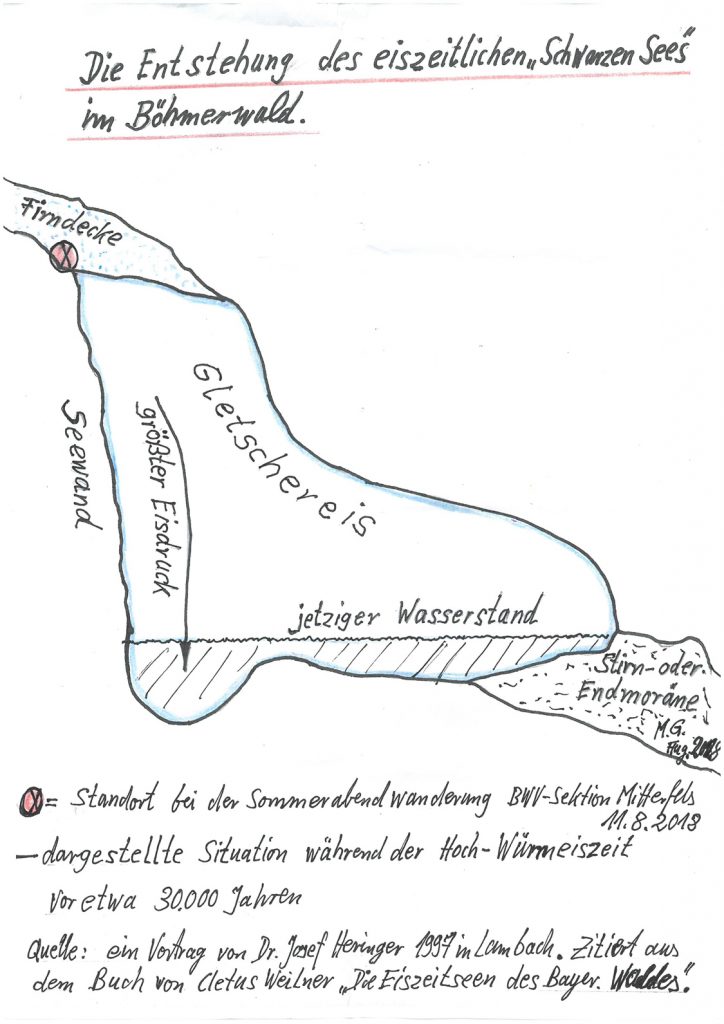 Die Entstehung des eiszeitlichen „Schwarzen Sees"
im Böhmerwald.
Firndecke
Gletschereis
Seewand
größter Eisdruck
jetziger Wasserstand
Stirn- oder
Endmoräne
M.G.
Aug. 2018
= Standort bei der Sommerabendwanderung BWV-Sektion Mitterfels
11.8.2018
— dargestellte Situation während der Hoch-Würmeiszeit
vor etwa 30.000 Jahren
Quelle: ein Vortrag von Dr. Josef Heringer 1997 in Lambach. Zitiert aus
dem Buch von Cletus Weilner „Die Eiszeitseen des Bayer. Waldes".